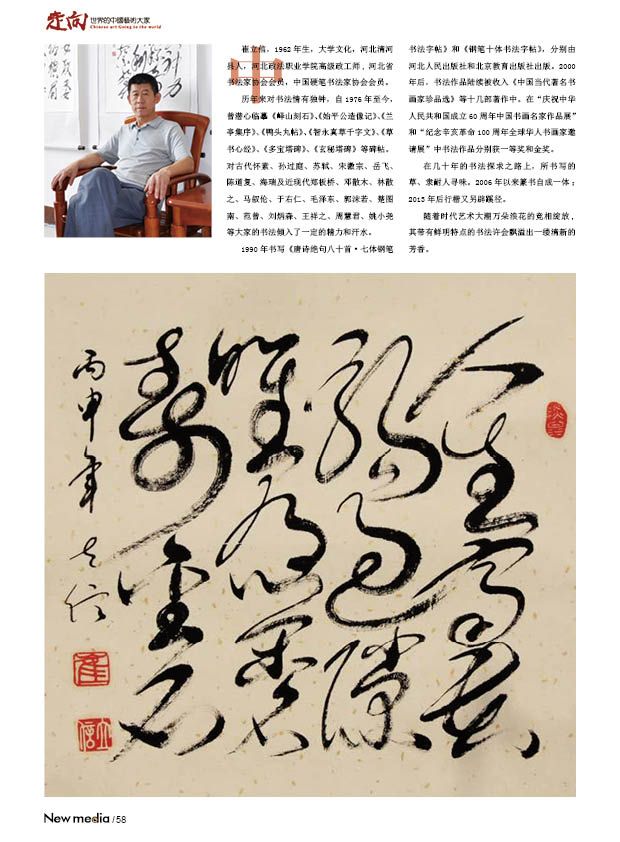 走向世界的中國藝術大家
Chinese art Going to the world
中
崔立信，1962年生，大学文化，河北清河
县人，河北政法职业学院高级政工师，河北省
书法家协会会员，中国硬笔书法家协会会员。
历年来对书法情有独钟，自1976年至今，
曾潜心临摹《峄山刻石》、《始平公造像记》、《兰
亭集序》、《鸭头丸帖》、《智永真草千字文》、《草
书心经》、《多宝塔碑》、《玄秘塔碑》等碑帖。
对古代怀素、孙过庭、苏轼、宋徽宗、岳飞、
陈道复、海瑞及近现代郑板桥、邓散木、林散
之、马叙伦、于右仁、毛泽东、郭沫若、楚图
南、范曾、刘炳森、王祥之、周慧珺、姚小尧
等大家的书法倾入了一定的精力和汗水。
1990年书写《唐诗绝句八十首·七体钢笔
书法字帖》和《钢笔十体书法字帖》，分别由
河北人民出版社和北京教育出版社出版。2000
年后，书法作品陆续被收入《中国当代著名书
画家珍品选》等十几部著作中。在“庆祝中华
人民共和国成立60周年中国书画名家作品展”
和“纪念辛亥革命100周年全球华人书画家邀
请展”中书法作品分别获一等奖和金奖。
在几十年的书法探求之路上，所书写的
草、隶耐人寻味。2006年以来篆书自成一体；
2013年后行楷又另辟蹊径。
随着时代艺术大潮万朵浪花的竞相绽放，
其带有鲜明特点的书法许会飘溢出一缕清新的
芳香。
人生
駒過隙
唯墨
壽金石
丙申年立信
崔
立信
New media / 58